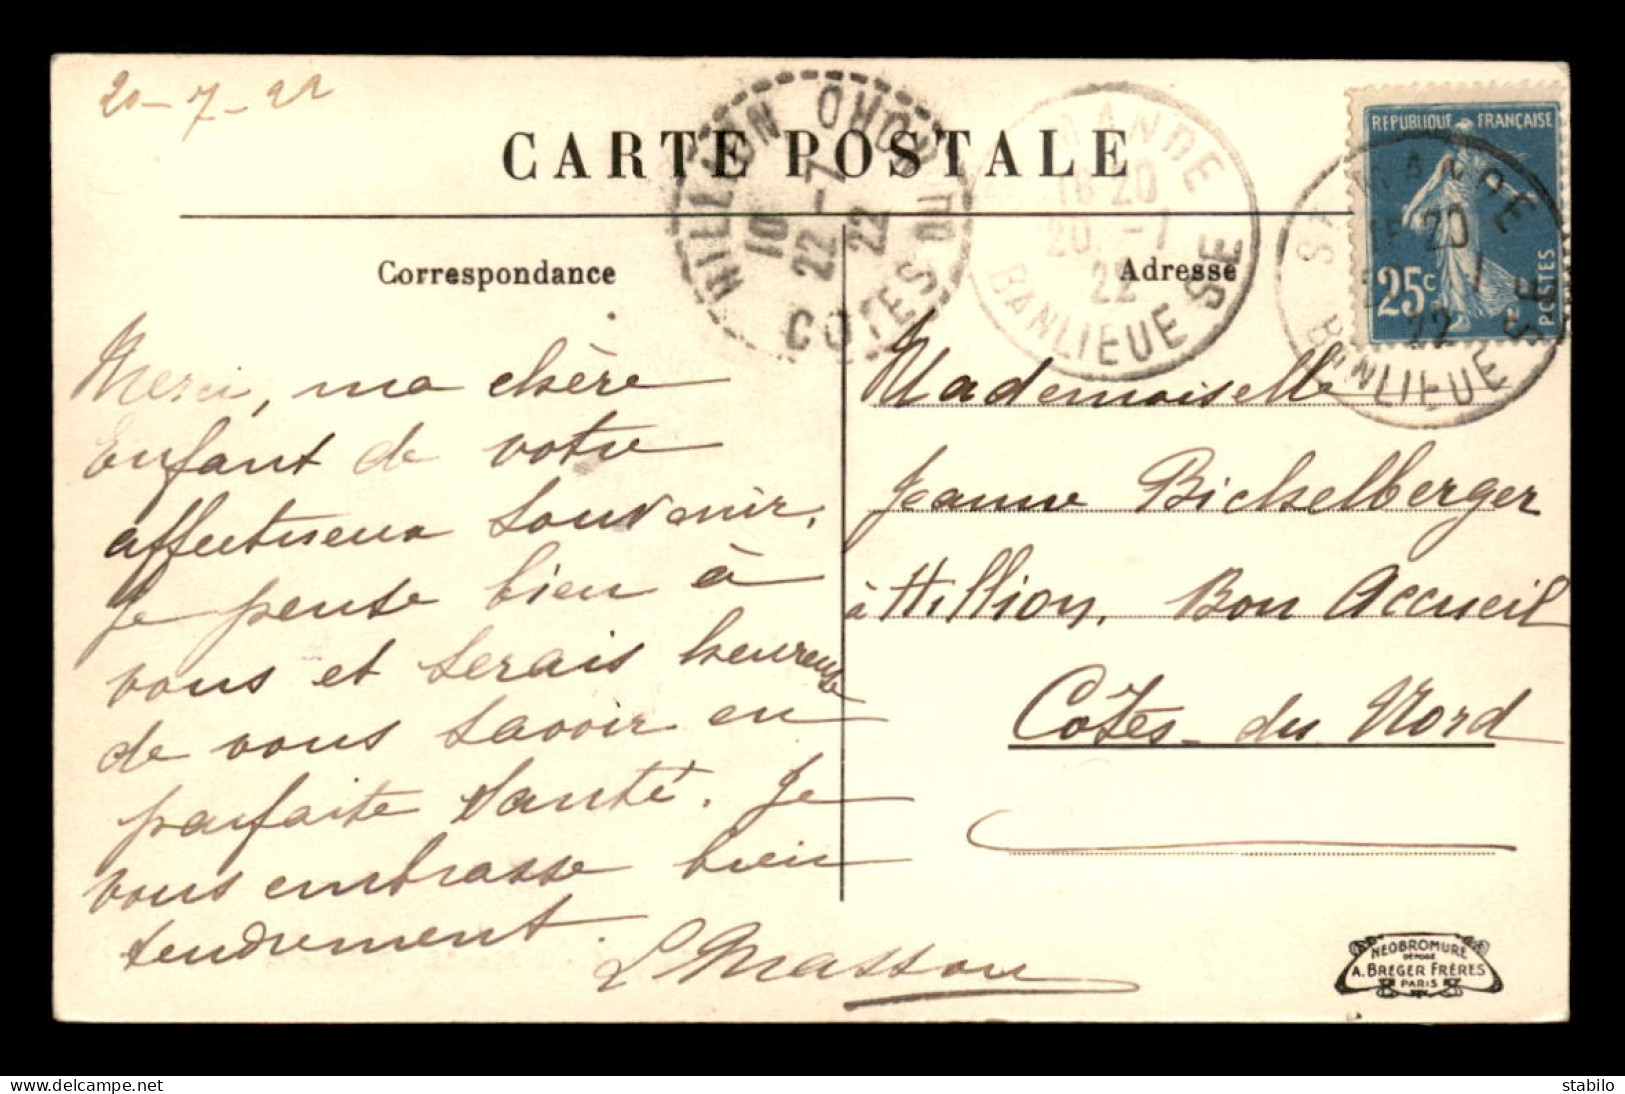 20-7-22
CARTE POSTALE
HILLION
10
22-7
22
COTES DU NORD
MANDE
18 20
20 -7
22
BANLIEUE SE
REPUBLIQUE FRANÇAISE
25c
POSTES
ST MANDE
20
22
BANLIEUE SE
Correspondance
Merci, ma chère
Enfant de votre
affectueux souvenir.
Je pense bien à
vous et serais heureuse
de vous savoir en
parfaite santé. Je
vous embrasse bien
tendrement.
L Masson
Adresse
Mademoiselle
Jeanne Bickelberger
à Hillion, Bon Accueil
Côtes-du Nord
NEOBROMURE
DÉPOSÉ
A. BREGER FRÈRES
PARIS
Tous droits réservés sur delcampe.net
stabilo